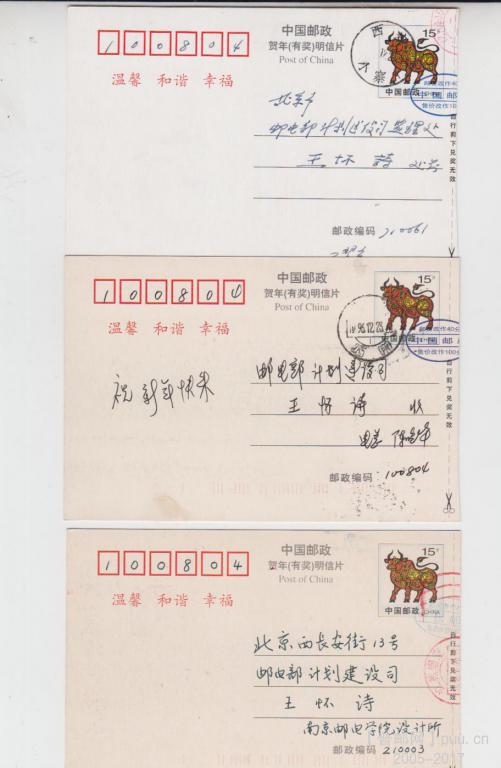 100804
中国邮政
贺年(有奖)明信片
Post of China
15分
中国邮政
西
温馨 和谐 幸福
中国邮
售价改作10
北京市
邮电部计划建设司
王怀诗
自行剪下兑奖无效
邮政编码
100804
中国邮政
贺年(有奖)明信片
Post of China
15分
中国邮政
温馨 和谐 幸福
邮资改作40分
中国邮政
售价改作100分
96.12.28
祝新年快乐
邮电部计划建设司
王怀诗 收
自行剪下兑奖无效
邮政编码 100804
100804
中国邮政
贺年(有奖)明信片
Post of China
15分
中国邮政 CHINA
温馨 和谐 幸福
北京西长安街13号
邮电部计划建设司
王怀诗
南京邮电学院设计所
自行剪下兑奖无效
邮政编码 210003
puu.cn
2005-2017